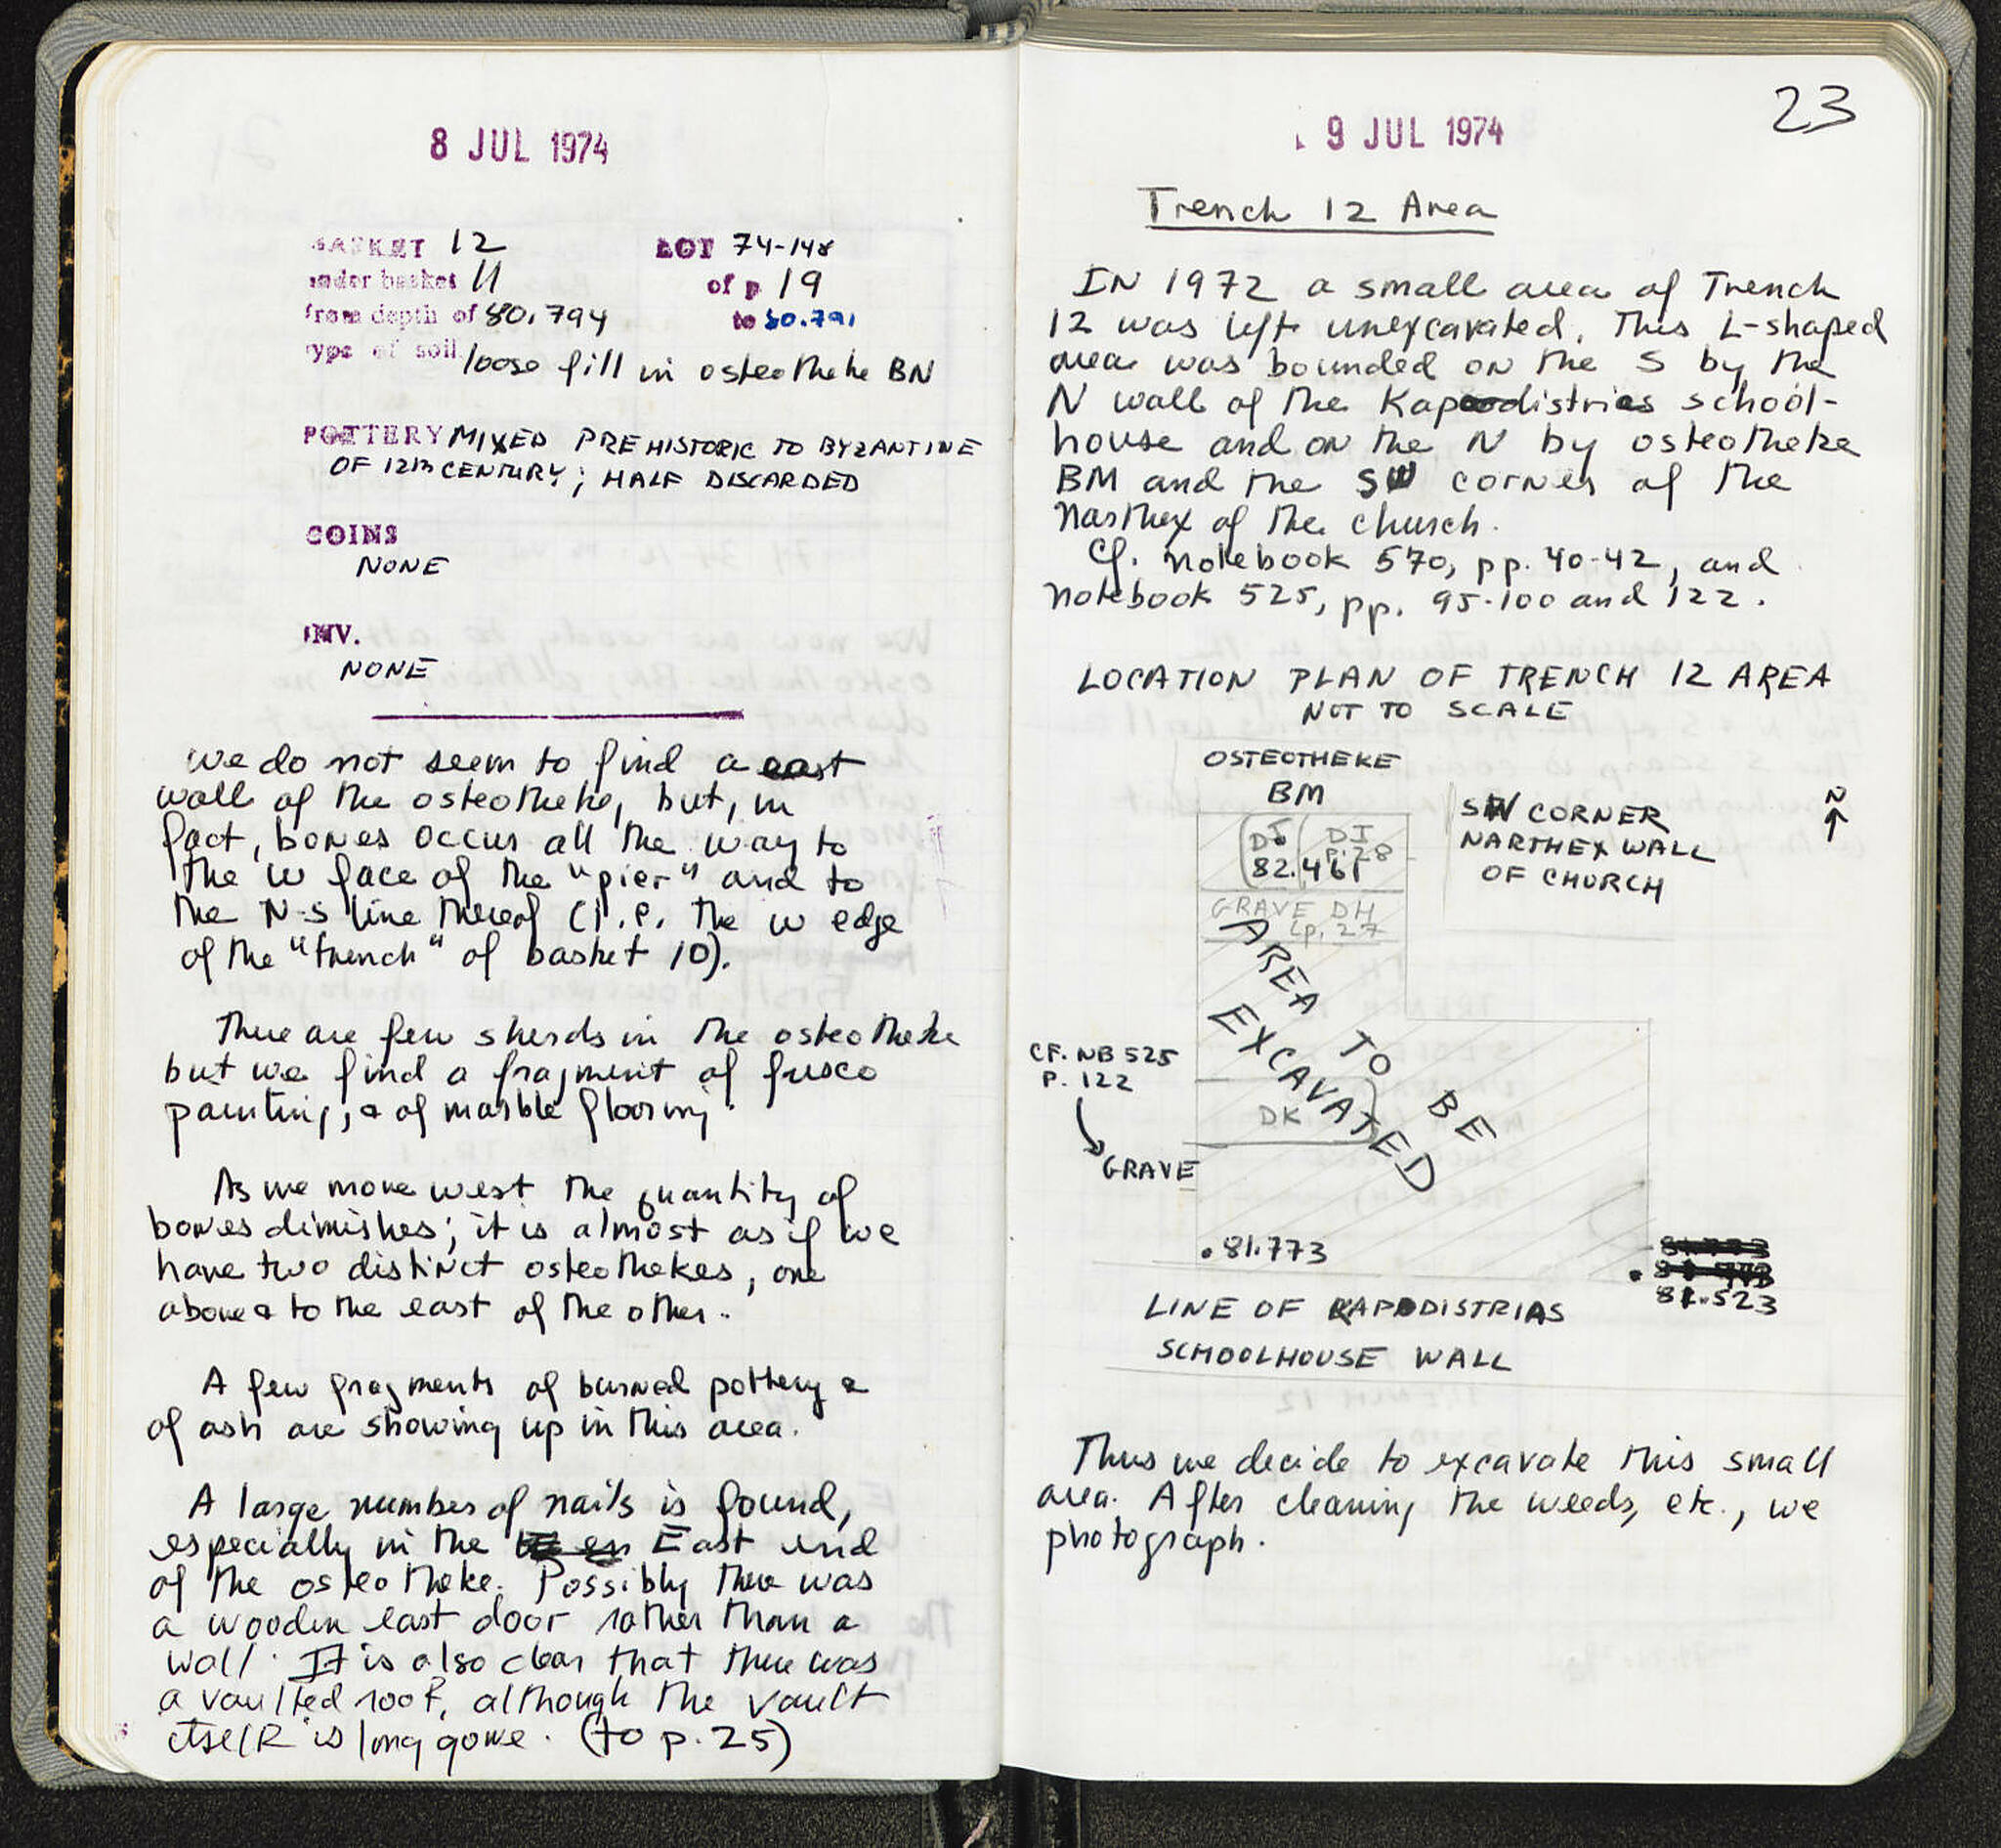 8 JUL 1974
BASKET 12 LOT 74-148
under basket 11 of p 19
from depth of 80.794 to 80.791
type of soil loose fill in osteotheke BN
POTTERY MIXED PREHISTORIC TO BYZANTINE
OF 12th CENTURY; HALF DISCARDED
COINS
NONE
INV.
NONE
We do not seem to find a east
wall of the osteotheke, but, in
fact, bones occur all the way to
the W face of the "pier" and to
the N-S line thereof (i.e. the W edge
of the "trench" of basket 10).
There are few sherds in the osteotheke
but we find a fragment of fresco
painting, & of marble flooring.
As we move west the quantity of
bones dimishes; it is almost as if we
have two distinct osteothekes, one
above & to the east of the other..
A few fragments of burned pottery &
of ash are showing up in this area.
A large number of nails is found,
especially in the East end
of the osteotheke. Possibly there was
a wooden east door rather than a
wall. It is also clear that there was
a vaulted roof, although the vault
itself is long gone. (to p. 25)
23
9 JUL 1974
Trench 12 Area
IN 1972 a small area of Trench
12 was left unexcavated. This L-shaped
area was bounded on the S by the
N wall of the Kapodistrias school-
house and on the N by osteotheke
BM and the SW corner of the
Narthex of the church.
Cf. notebook 570, pp. 40-42, and
notebook 525, pp. 95-100 and 122.
LOCATION PLAN OF TRENCH 12 AREA
NOT TO SCALE
OSTEOTHEKE
BM
SW CORNER
NARTHEX WALL
OF CHURCH
N
DJ DI
p. 28
82.461
GRAVE DH
(p. 27
AREA TO BE
EXCAVATED
CF. NB 525
P. 122
GRAVE
DK
.81.773
81.523
LINE OF KAPODISTRIAS
SCHOOLHOUSE WALL
Thus we decide to excavate this small
area. After cleaning the weeds, etc., we
photograph.